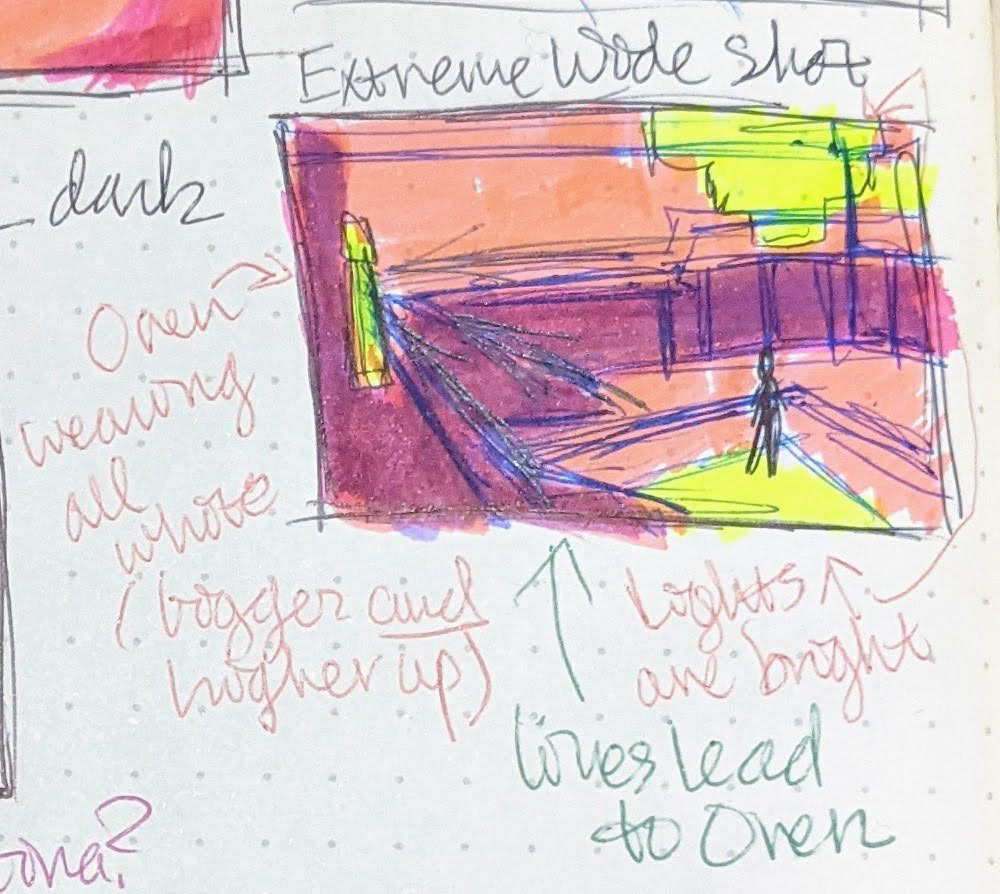 Extreme Wide Shot
dark
Oren
wearing
all
white
(bigger and
higher up)
Lights
are bright
lines lead
to Oren